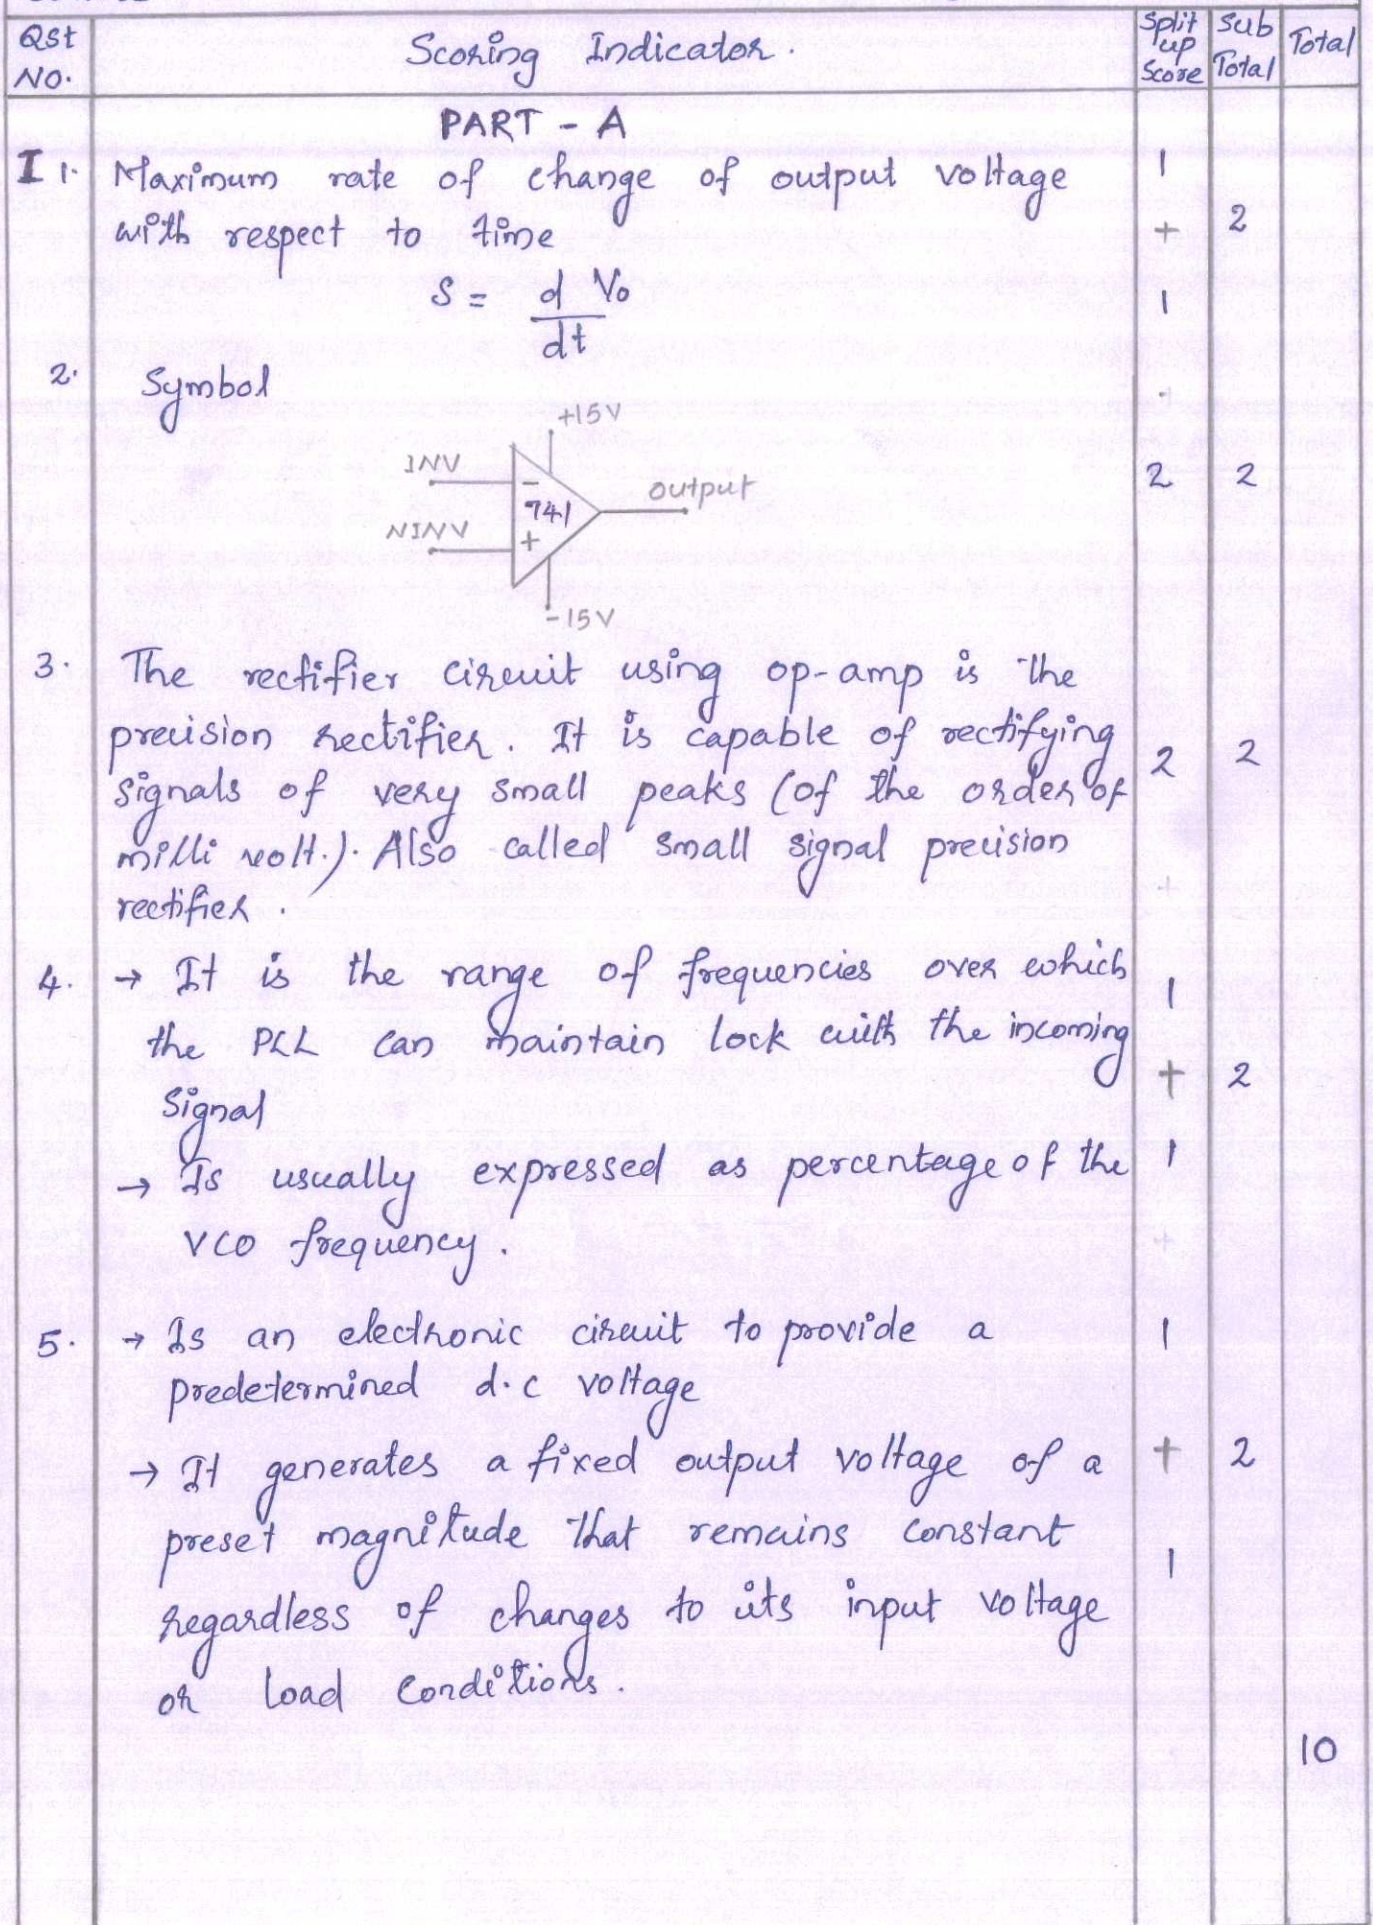 Qst No. Scoring Indicator. Split up Score Sub Total Total
PART - A
I 1. Maximum rate of change of output voltage 1
with respect to time + 2
S = d Vo / dt 1
2. Symbol
+15V
INV - 741 output 2 2
NINV +
-15V
3. The rectifier circuit using op-amp is the
precision rectifier. It is capable of rectifying 2 2
signals of very small peaks (of the order of
milli volt.). Also called small signal precision
rectifier.
4. → It is the range of frequencies over which 1
the PLL can maintain lock with the incoming
Signal + 2
→ Is usually expressed as percentage of the 1
VCO frequency.
5. → Is an electronic circuit to provide a 1
predetermined d.c voltage
→ It generates a fixed output voltage of a + 2
preset magnitude that remains constant
regardless of changes to its input voltage 1
or load conditions.
10